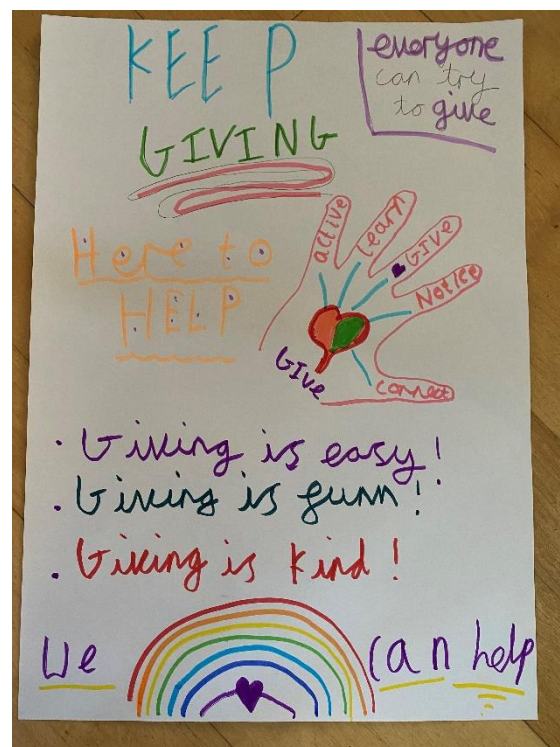 KEEP
GIVING
everyone
can try
to give
Here to
HELP
active
learn
GIVE
Notice
connect
GIve
. Giving is easy!
. Giving is funn!
. Giving is kind!
We can help